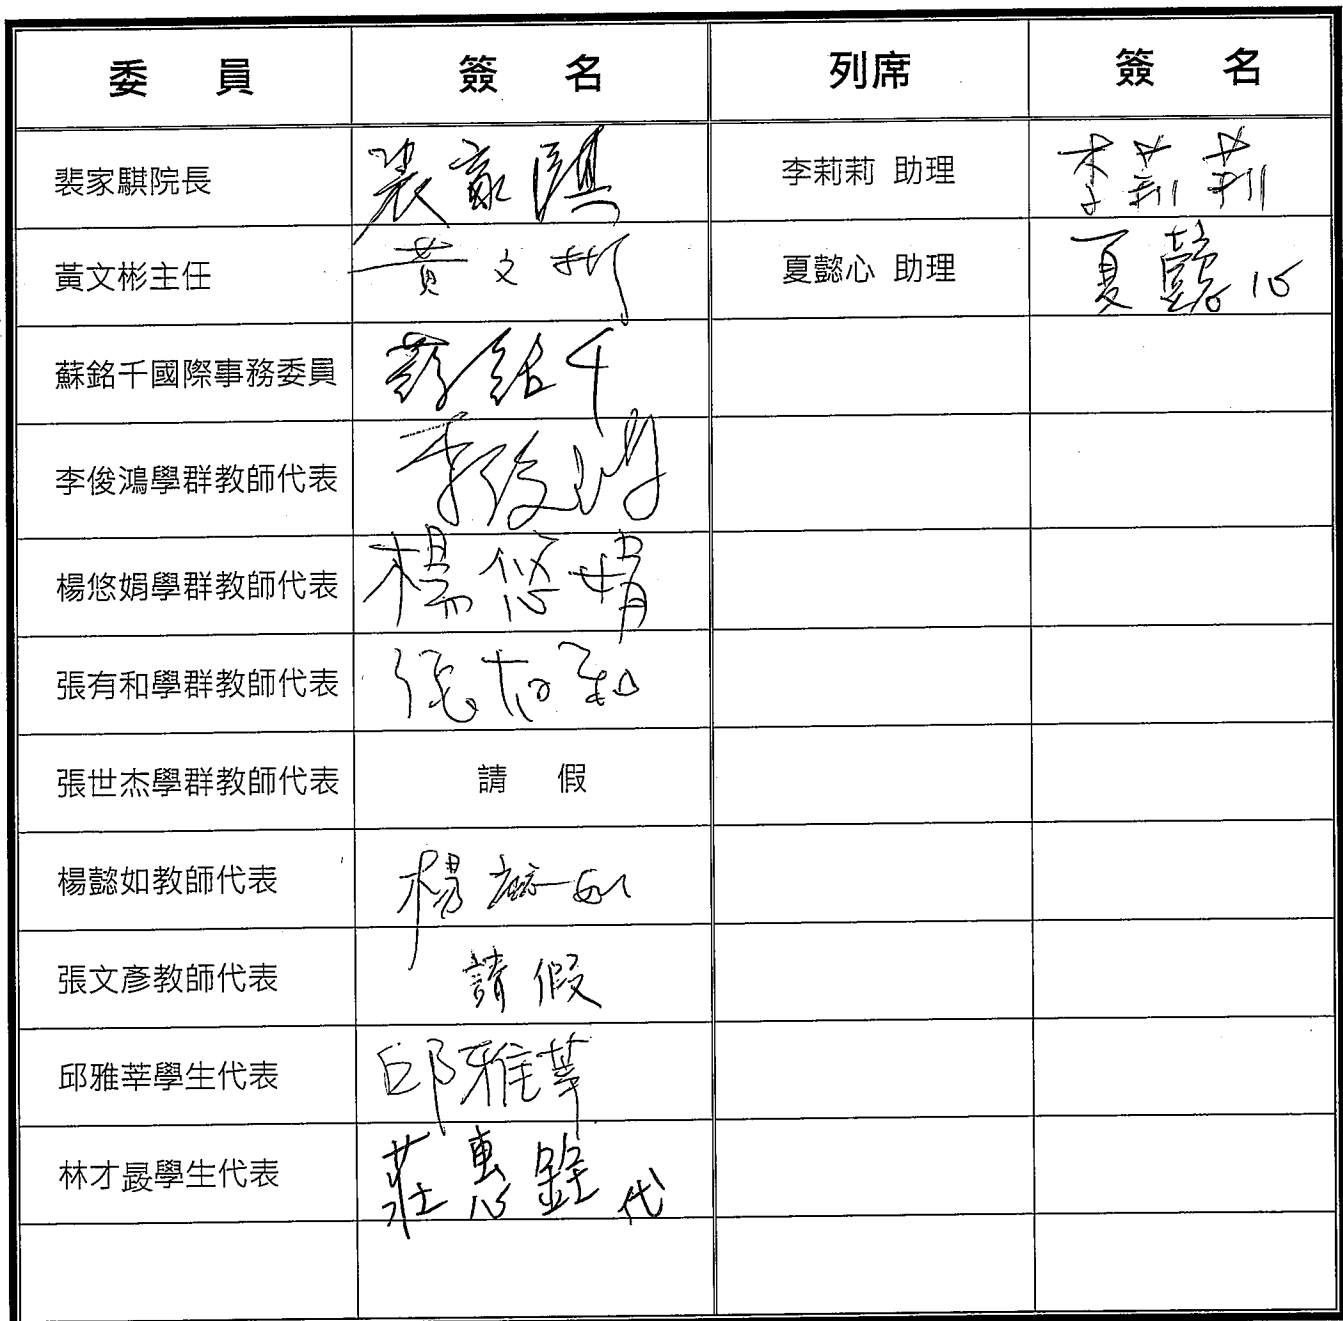 委員 簽名 列席 簽名
裴家騏院長 裴家騏 李莉莉 助理 李莉莉
黃文彬主任 黃文彬 夏懿心 助理 夏懿心
蘇銘千國際事務委員 蘇銘千
李俊鴻學群教師代表 李俊鴻
楊悠娟學群教師代表 楊悠娟
張有和學群教師代表 張有和
張世杰學群教師代表 請假
楊懿如教師代表 楊懿如
張文彥教師代表 請假
邱雅莘學生代表 邱雅莘
林才晸學生代表 莊惠銓代